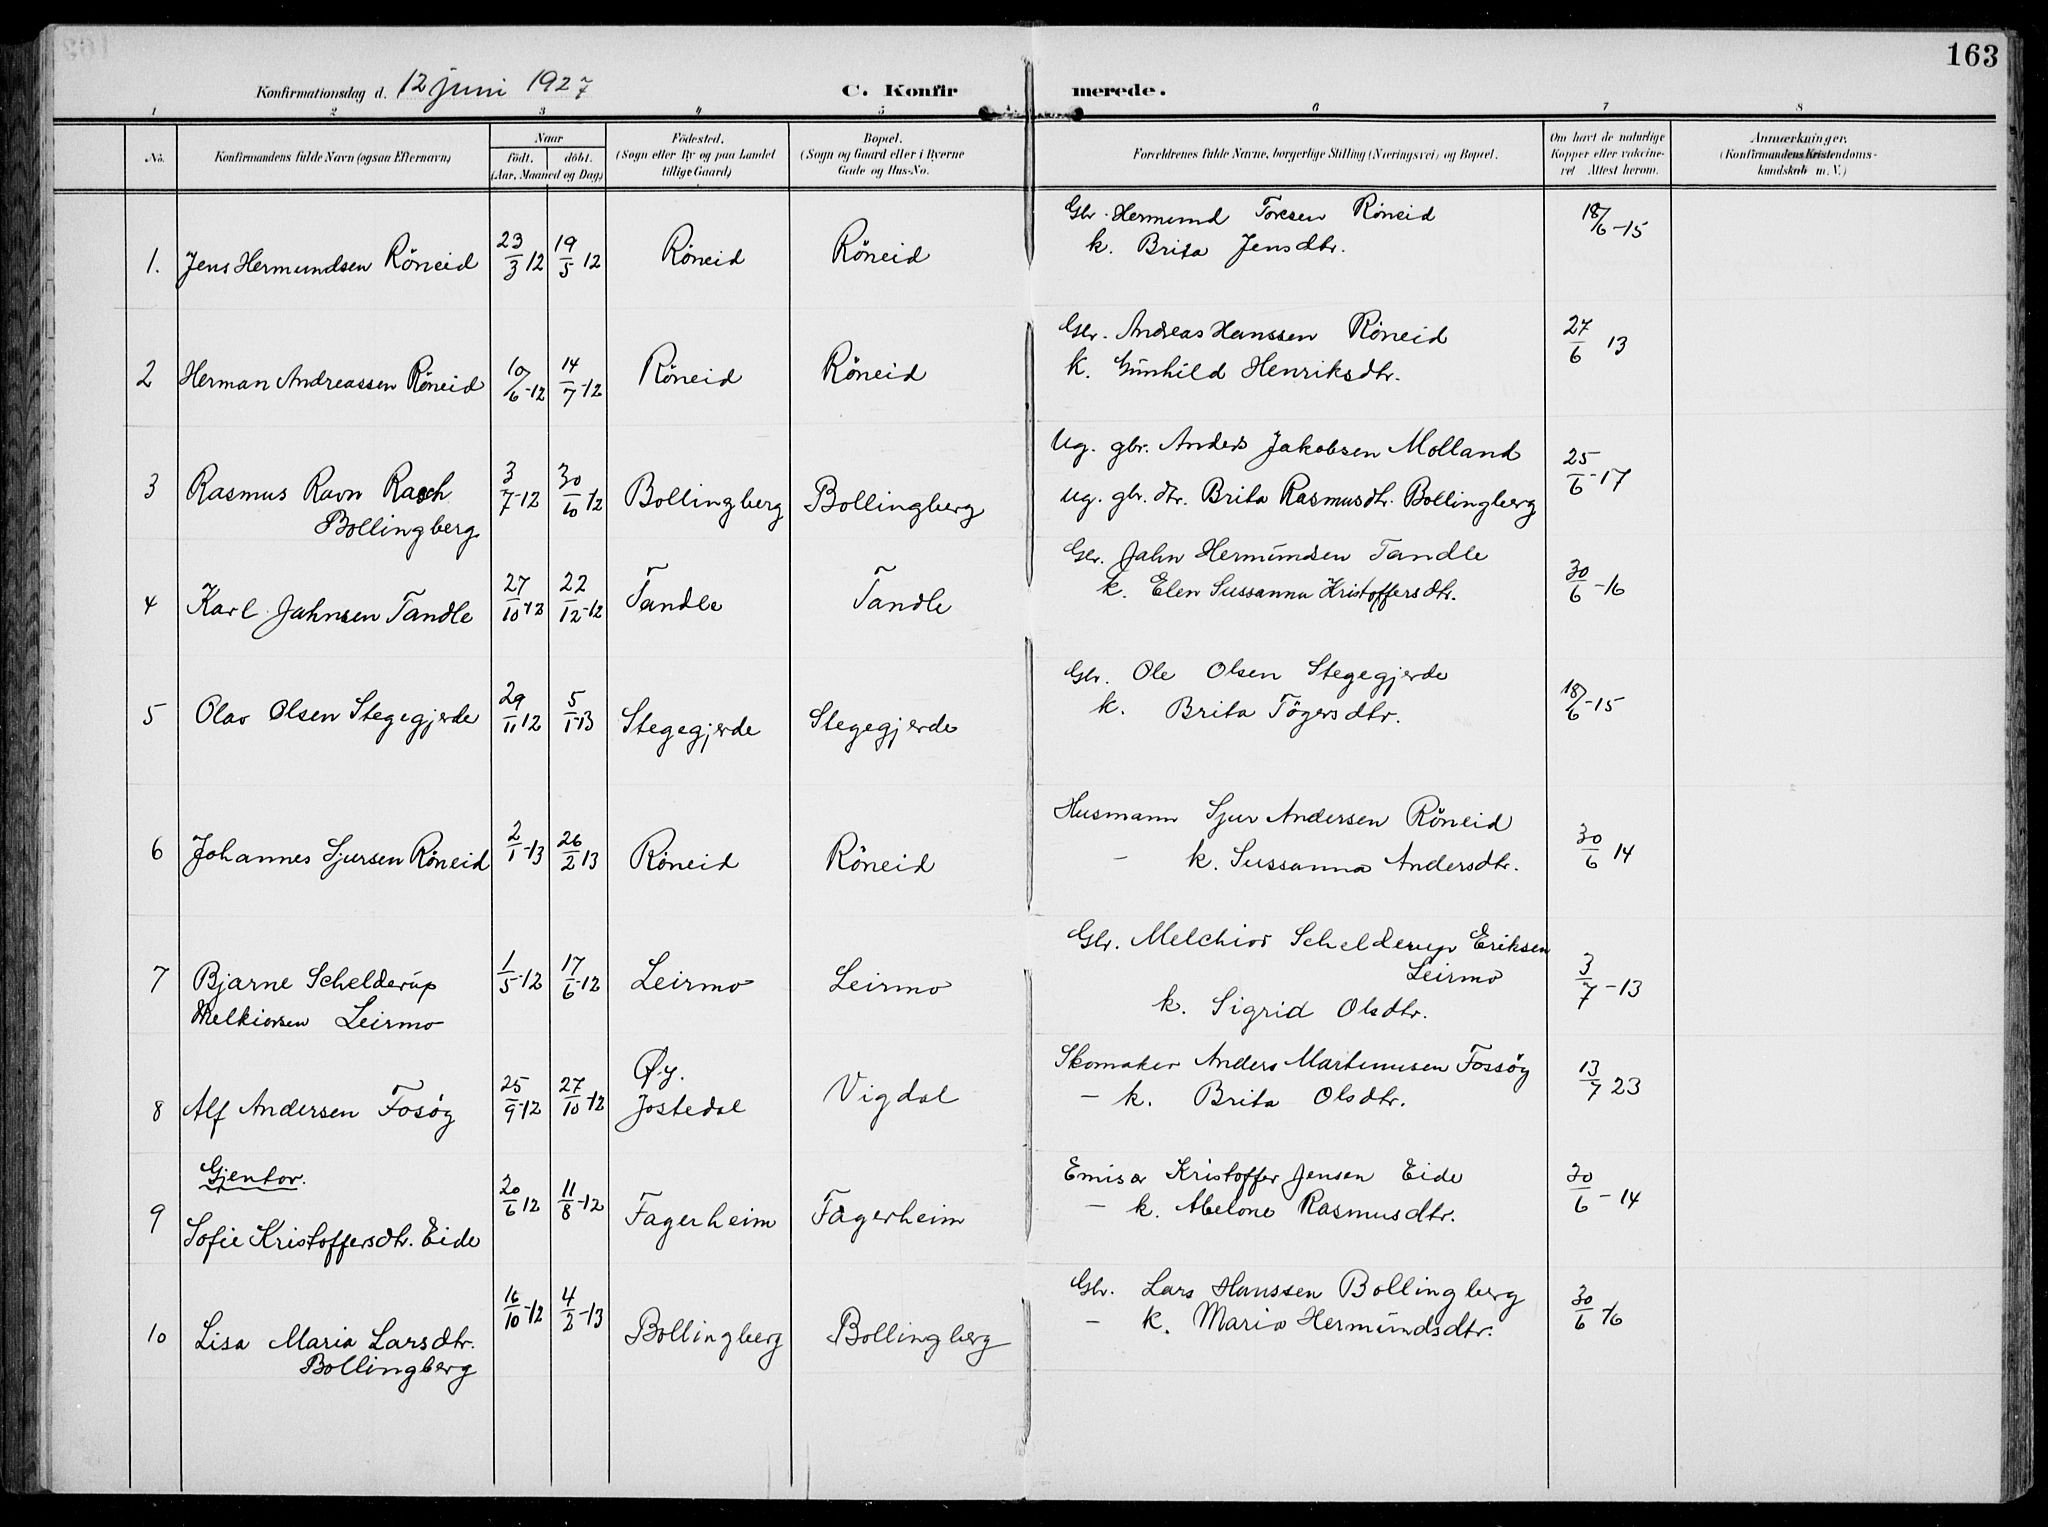 163
Konfirmationsdag d. 12 juni 1927
C. Konfirmerede.
1 2 3 4 5 6 7 8
No.
Konfirmandens fulde Navn (ogsaa Efternavn)
Naar
födt. döbt.
(Aar, Maaned og Dag)
Födested.
(Sogn eller By og paa Landet
tillige Gaard)
Bopæl.
(Sogn og Gaard eller i Byerne
Gade og Hus-No.
Forældrenes fulde Navne, borgerlige Stilling (Næringsvei) og Bopæl.
Om havt de naturlige
Kopper eller vakcine-
ret Attest herom.
Anmærkninger.
(Konfirmandens Kristendoms-
kundskab m. V.)
1. Jens Hermundsen Röneid 23/3 12 19/5 12 Röneid Röneid Gbr. Hermund Toresen Röneid 18/6-15
k. Brita Jensdtr.
2 Herman Andreassen Röneid 10/6-12 14/7-12 Röneid Röneid Gbr. Andreas Hanssen Röneid 27/6 13
k. Gunhild Henriksdtr.
3 Rasmus Ravn Rasch 3/7-12 30/10-12 Bollingberg Bollingberg Ug. gbr. Anders Jakobsen Molland 25/6-17
Bollingberg ug. gbr. dtr. Brita Rasmusdtr. Bollingberg
4 Karl Jahnsen Tandle 27/10-12 22/12-12 Tandle Tandle Gbr. Jahn Hermundsen Tandle 30/6-16
k. Elen Sussanna Kristoffersdtr.
5 Olav Olsen Stegegjerde 29/11 12 5/1-13 Stegegjerde Stegegjerde Gbr. Ole Olsen Stegegjerde 18/6-15
k. Brita Tögersdtr.
6 Johannes Sjursen Röneid 2/1-13 26/2 13 Röneid Röneid Husmann Sjur Andersen Röneid 30/6 14
– k. Sussanna Andersdtr.
7 Bjarne Schelderup 1/5-12 17/6-12 Leirmo Leirmo Gbr. Melchior Schelderup Eriksen 3/7-13
Melkiorsen Leirmo Leirmo
k. Sigrid Olsdtr.
8 Alf Andersen Fosöy 25/9-12 27/10-12 Øy. Jostedal Vigdal Skomaker Anders Martinusen Fossöy 13/7 23
– k. Brita Olsdtr.
Gjentor.
9 Sofie Kristoffersdtr. Eide 20/6 12 11/8-12 Fagerheim Fagerheim Emisær Kristoffer Jensen Eide 30/6-14
– k. Abelone Rasmusdtr.
10 Lisa Maria Larsdtr. 16/10-12 4/2-13 Bollingberg Bollingberg Gbr. Lars Hanssen Bollingberg 30/6-16
Bollingberg – k. Maria Hermundsdtr.